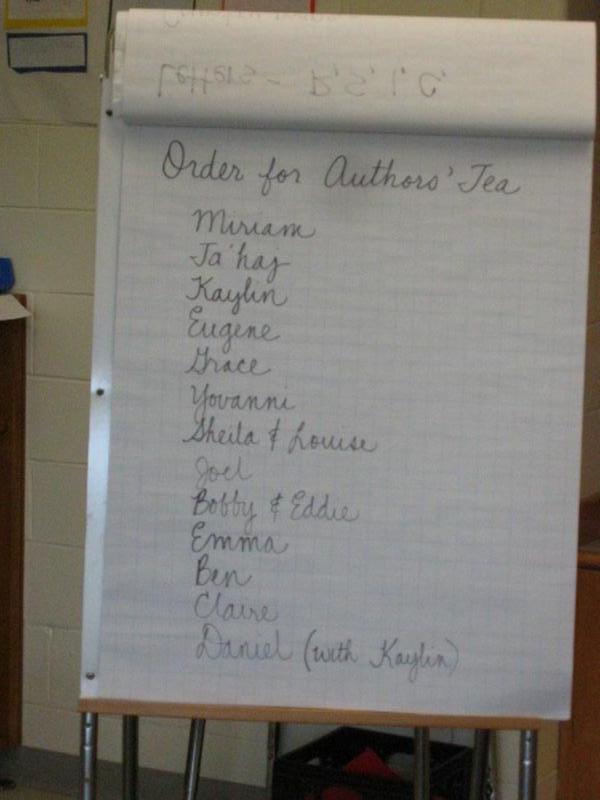 Letters - P.S.I.C.
Order for Authors' Tea
Miriam
Ta'haj
Kaylin
Eugene
Grace
Yovanni
Sheila & Louise
Joel
Bobby & Eddie
Emma
Ben
Claire
Daniel (with Kaylin)